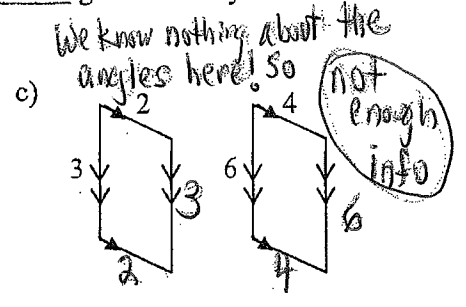 We know nothing about the
angles here! So
not
enough
info
c)
2
4
3
3
6
6
2
4